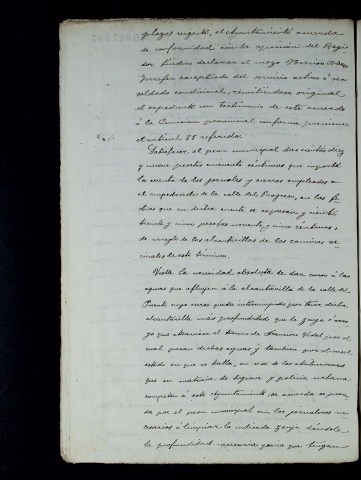 plazo urgente, el Ayuntamiento acuerda
de conformidad con la opinion del Regi
dor Síndico declarar al mozo
exceptuado del servicio activo ó sea
soldado condicional, remitiéndose original
el expediente con testimonio de este acuerdo
á la Comision provincial conforme previene
el artícul 55 referido.
Satisfacer al peon municipal dos cientas diez
y nueve pesetas cincuenta céntimos que importó
la cuenta de los jornales y carros empleados en
el empedrado de la calle del Progreso, en los
dias que en dicha cuenta se expresan y ciento
treinta y cinco pesetas noventa y cinco céntimos,
de arreglo de las alcantarillas de los caminos ve
cinales de este término.
Vista la necesidad absoluta de dar curso á las
aguas que afluyen á la alcantarilla de la calle del
Puente cuyo curso queda interrumpido por tener dicha
alcantarilla más profundidad que la zanja ó
que atraviesa el terreno de Francisco Vidal por el
cual pasan dichas aguas y tambien por el mal
estado en que se halla, en uso de las atribuciones
que en materia de higiene y policia urbana
competen á este Ayuntamiento se acuerda se proce
da por el peon municipal con los jornaleros ne
cesarios á limpiar la indicada zanja dándole
la profundidad necesaria para que tengan